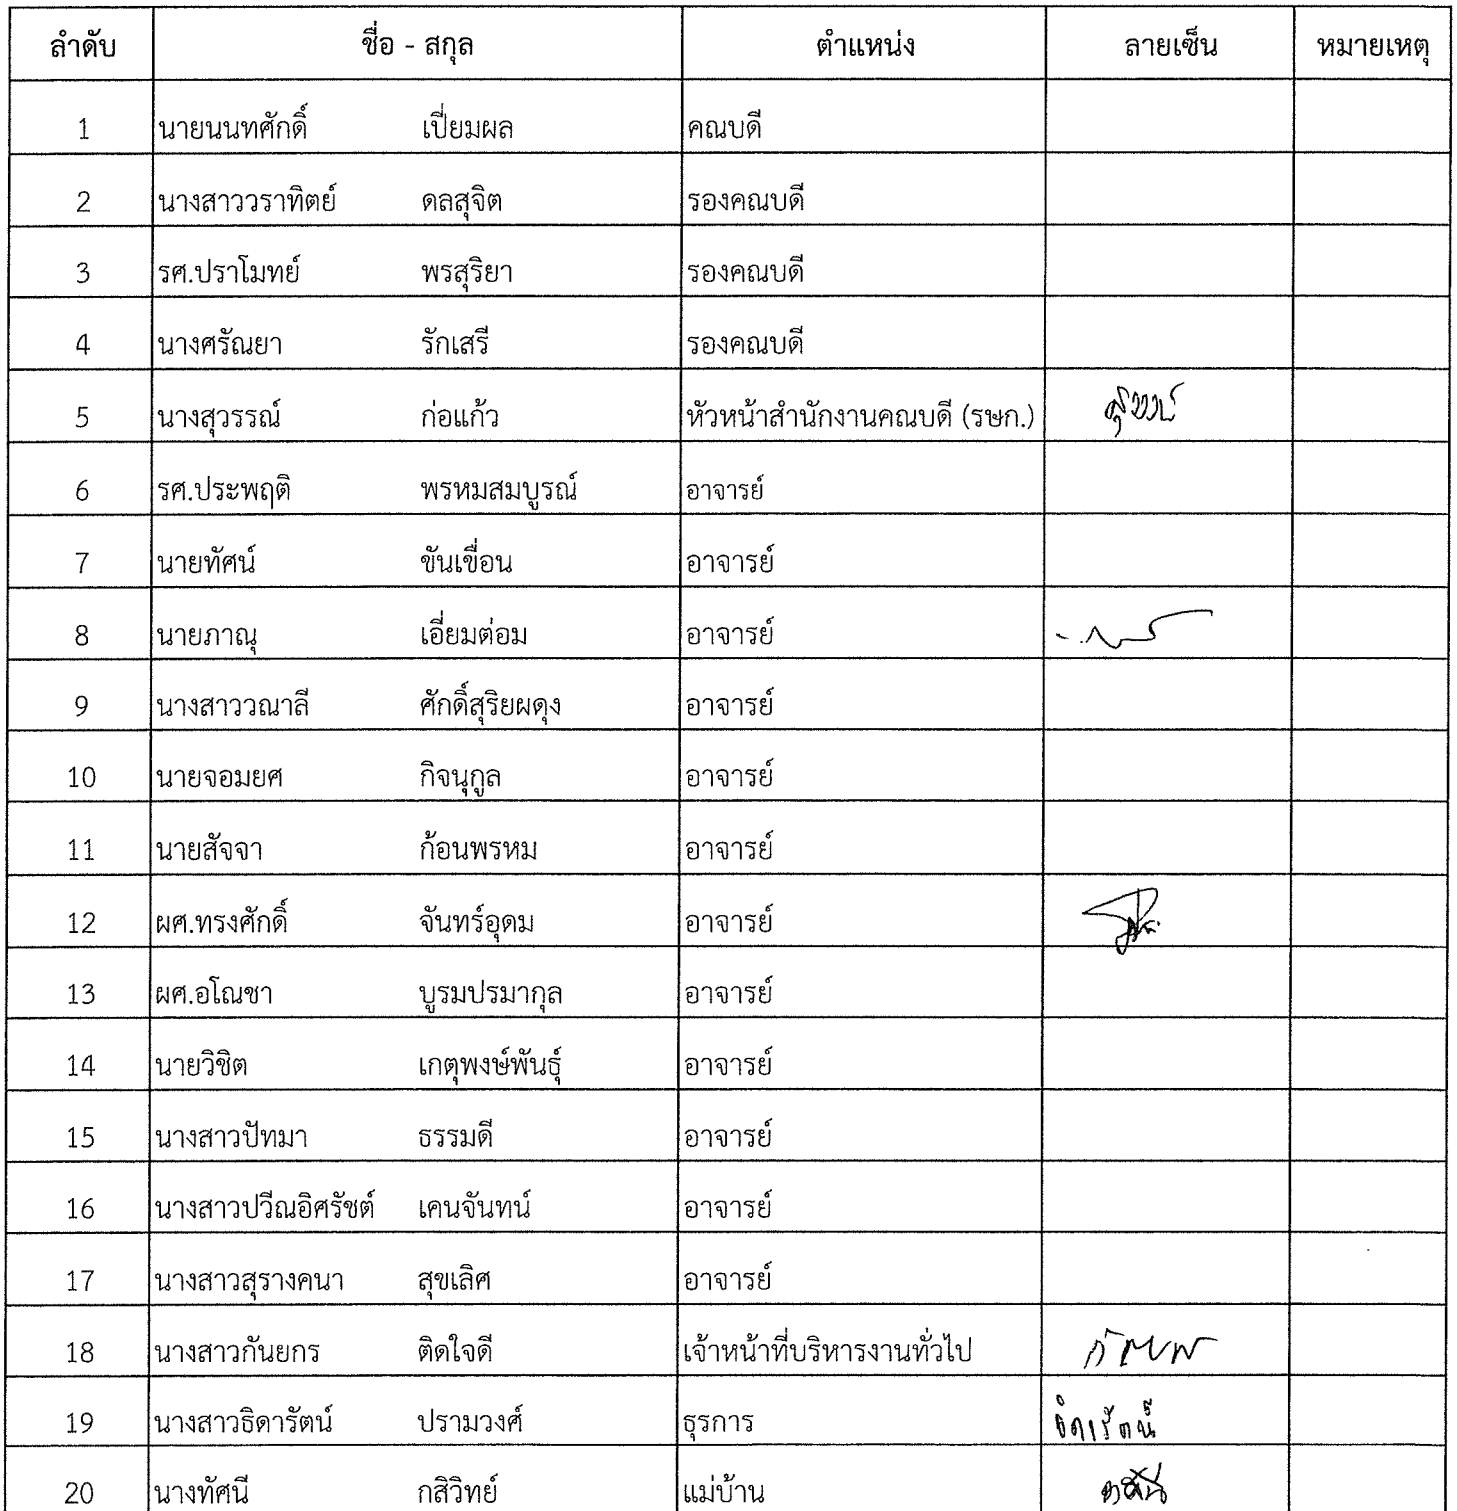 ลำดับ ชื่อ - สกุล ตำแหน่ง ลายเซ็น หมายเหตุ
1 นายนนทศักดิ์ เปี่ยมผล คณบดี
2 นางสาววราทิตย์ ดลสุจิต รองคณบดี
3 รศ.ปราโมทย์ พรสุริยา รองคณบดี
4 นางศรัณยา รักเสรี รองคณบดี
5 นางสุวรรณ์ ก่อแก้ว หัวหน้าสำนักงานคณบดี (รษก.)
6 รศ.ประพฤติ พรหมสมบูรณ์ อาจารย์
7 นายทัศน์ ขันเขื่อน อาจารย์
8 นายภาณุ เอี่ยมต่อม อาจารย์
9 นางสาววณาลี ศักดิ์สุริยผดุง อาจารย์
10 นายจอมยศ กิจนุกูล อาจารย์
11 นายสัจจา ก้อนพรหม อาจารย์
12 ผศ.ทรงศักดิ์ จันทร์อุดม อาจารย์
13 ผศ.อโณชา บูรมปรมากุล อาจารย์
14 นายวิชิต เกตุพงษ์พันธุ์ อาจารย์
15 นางสาวปัทมา ธรรมดี อาจารย์
16 นางสาวปวีณอิศรัชต์ เคนจันทน์ อาจารย์
17 นางสาวสุรางคนา สุขเลิศ อาจารย์
18 นางสาวกันยกร ติดใจดี เจ้าหน้าที่บริหารงานทั่วไป
19 นางสาวธิดารัตน์ ปรามวงศ์ ธุรการ ธิดารัตน์
20 นางทัศนี กสิวิทย์ แม่บ้าน